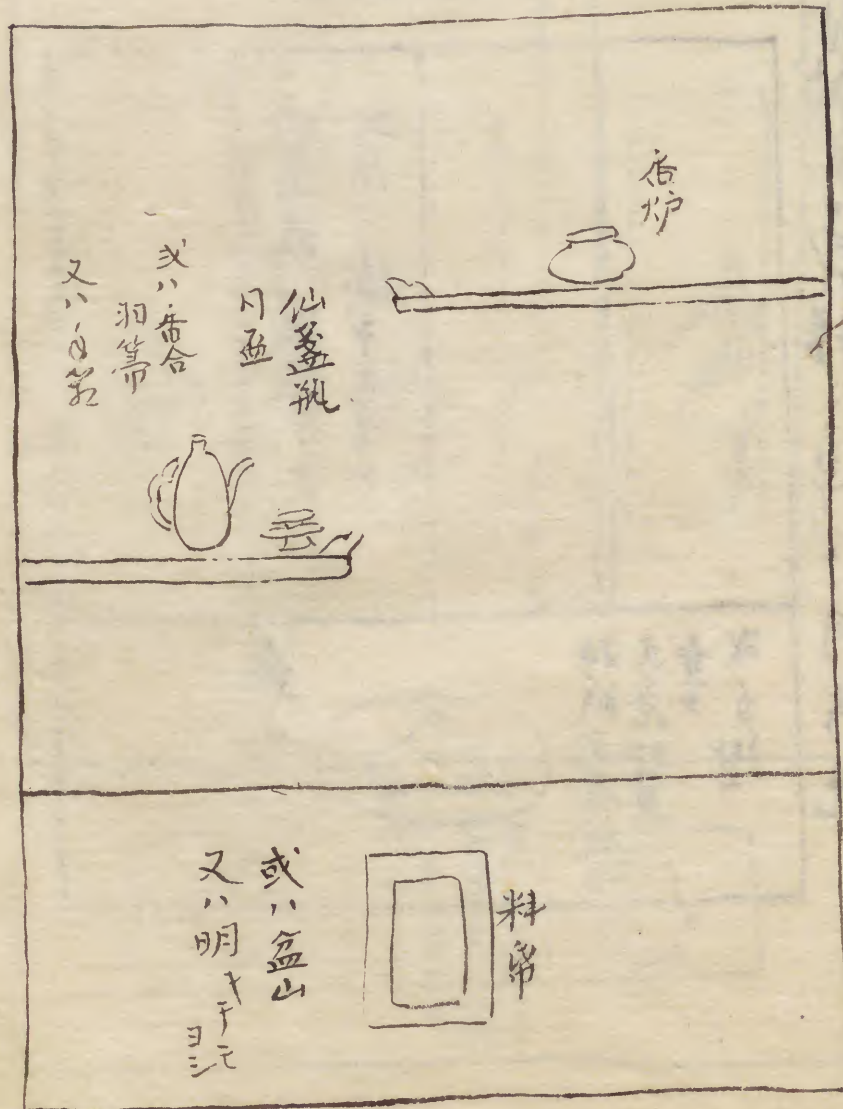 香炉
仙盞瓶
同
或ハ香合
羽箒
又ハ
料帋
或ハ盆山
又ハ明キテモ
ヨシ